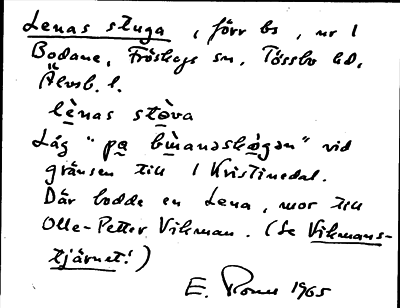 Lenas stuga, förr bs, nr 1
Bodane, Fröskogs sn, Tössbo hd,
Älvsb. l.
lènas stòva
Låg "pa bìnanaskògan" vid
gränsen till 1 Kristinedal.
Där bodde en Lena, mor till
Olle-Petter Vikman. (Se Vikmans-
tjärnet!)
E. 1965